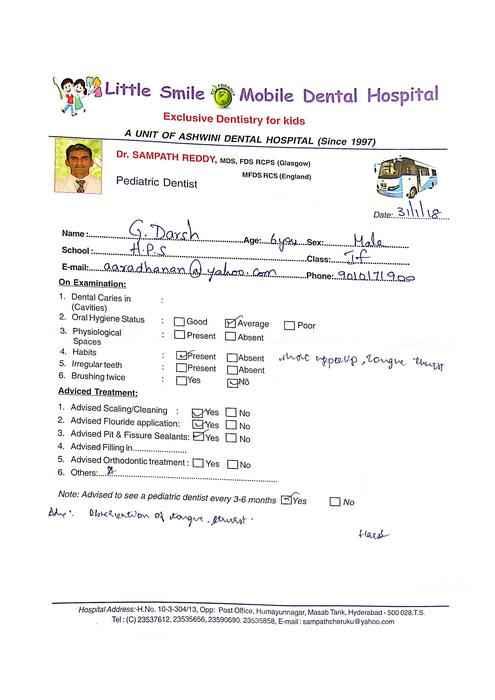 Little Smile Mobile Dental Hospital
Exclusive Dentistry for kids
A UNIT OF ASHWINI DENTAL HOSPITAL (Since 1997)
Dr. SAMPATH REDDY, MDS, FDS RCPS (Glasgow)
MFDS RCS (England)
Pediatric Dentist
Date: 31/1/18
Name: G. Darsh Age: 6 years Sex: Male
School: H.P.S Class: I-f
E-mail: aaradhanan@yahoo.com Phone: 9010171900
On Examination:
1. Dental Caries in :
(Cavities)
2. Oral Hygiene Status : Good Average Poor
3. Physiological : Present Absent
Spaces
4. Habits : Present Absent short upper lip, tongue thrust
5. Irregular teeth : Present Absent
6. Brushing twice : Yes No
Adviced Treatment:
1. Advised Scaling/Cleaning : Yes No
2. Advised Flouride application: Yes No
3. Advised Pit & Fissure Sealants: Yes No
4. Advised Filling In
5. Advised Orthodontic treatment : Yes No
6. Others:
Note: Advised to see a pediatric dentist every 3-6 months Yes No
Adv: Observation of tongue thrust.
Hospital Address:-H.No. 10-3-304/13, Opp: Post Office, Humayunnagar, Masab Tank, Hyderabad - 500 028.T.S.
Tel : (C) 23537612, 23535656, 23590690, 23535858, E-mail : sampathcheruku@yahoo.com